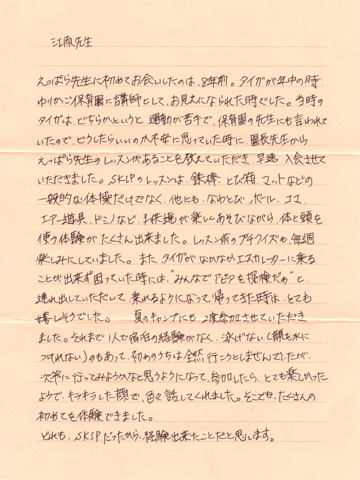 江原先生
えっぱら先生に初めてお会いしたのは、8年前。タイガが年中の時
ゆりかご保育園に講師として、お見えになられた時でした。当時の
タイガは、どちらかというと、運動が苦手で、保育園の先生にも言われて
いたので、どうしたらいいのか不安に思っていた時に、園長先生から
えっぱら先生のレッスンがあることを教えていただき、早速、入会させて
いただきました。SKIPのレッスンは、鉄棒、とび箱、マットなどの
一般的な体操だけでなく、他にも、なわとび、ボール、コマ、
エアー道具、ドミノなど、お友達が楽しくあそびながら、体と頭を
使う体験がたくさん出来ました。レッスン前のプチクイズも、毎週
楽しみにしていました。また、タイガがなかなかエスカレーターに乗る
ことが出来ず困っていた時には、"みんなでアピタを探検だぁ"と
連れ出していただいて、乗れるようになって帰ってきた時は、とても
嬉しそうでした。夏のキャンプにも、2度参加させていただき
ました。それまで1人で宿泊の経験がなく、泳げない(顔を水に
つけれない)のもあって、初めのうちは全然行こうとしませんでしたが、
次第に行ってみようかなと思うようになって、参加したら、とても楽しかった
ようで、キラキラした顔で、色々話してくれました。そこでも、たくさんの
初めてを体験できました。
どれも、SKIPだったから、経験出来たことだと思います。